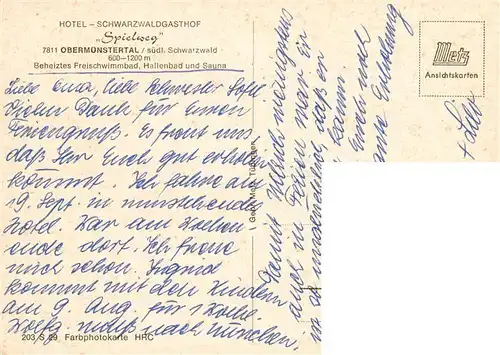 HOTEL – SCHWARZWALDGASTHOF
„Spielweg"
7811 OBERMÜNSTERTAL / südl. Schwarzwald
600–1200 m
Beheiztes Freischwimmbad, Hallenbad und Sauna
Metz
Ansichtskarten
Liebe Erna, liebe Schwester Sofie
Vielen Dank für Euren
Feriengruß. Es freut uns
daß Ihr Euch gut erholen
könnt. Ich fahre am
19. Sept. in umstehendes
Hotel. War am Wochen-
ende dort. Ich freue
mich schon. Ingrid
kommt mit den Kindern
am 9. Aug. für 1 Woche.
Wolfg. muß nach München,
Gebr. Metz, Tübingen
damit Ulrich wenigstens
auch in Ferien war
in
daß er
kann.
Euch noch
gute Erholung
+ Leo
203 S 29 Farbphotokarte HRC